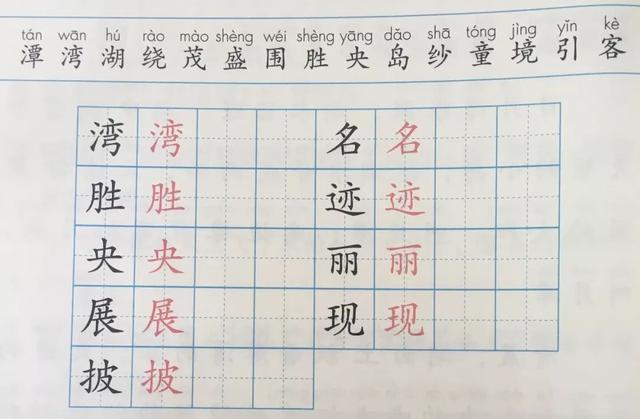 tán wān hú rào mào shèng wéi shèng yāng dǎo shā tóng jìng yǐn kè
潭 湾 湖 绕 茂 盛 围 胜 央 岛 纱 童 境 引 客
湾 湾 名 名
胜 胜 迹 迹
央 央 丽 丽
展 展 现 现
披 披